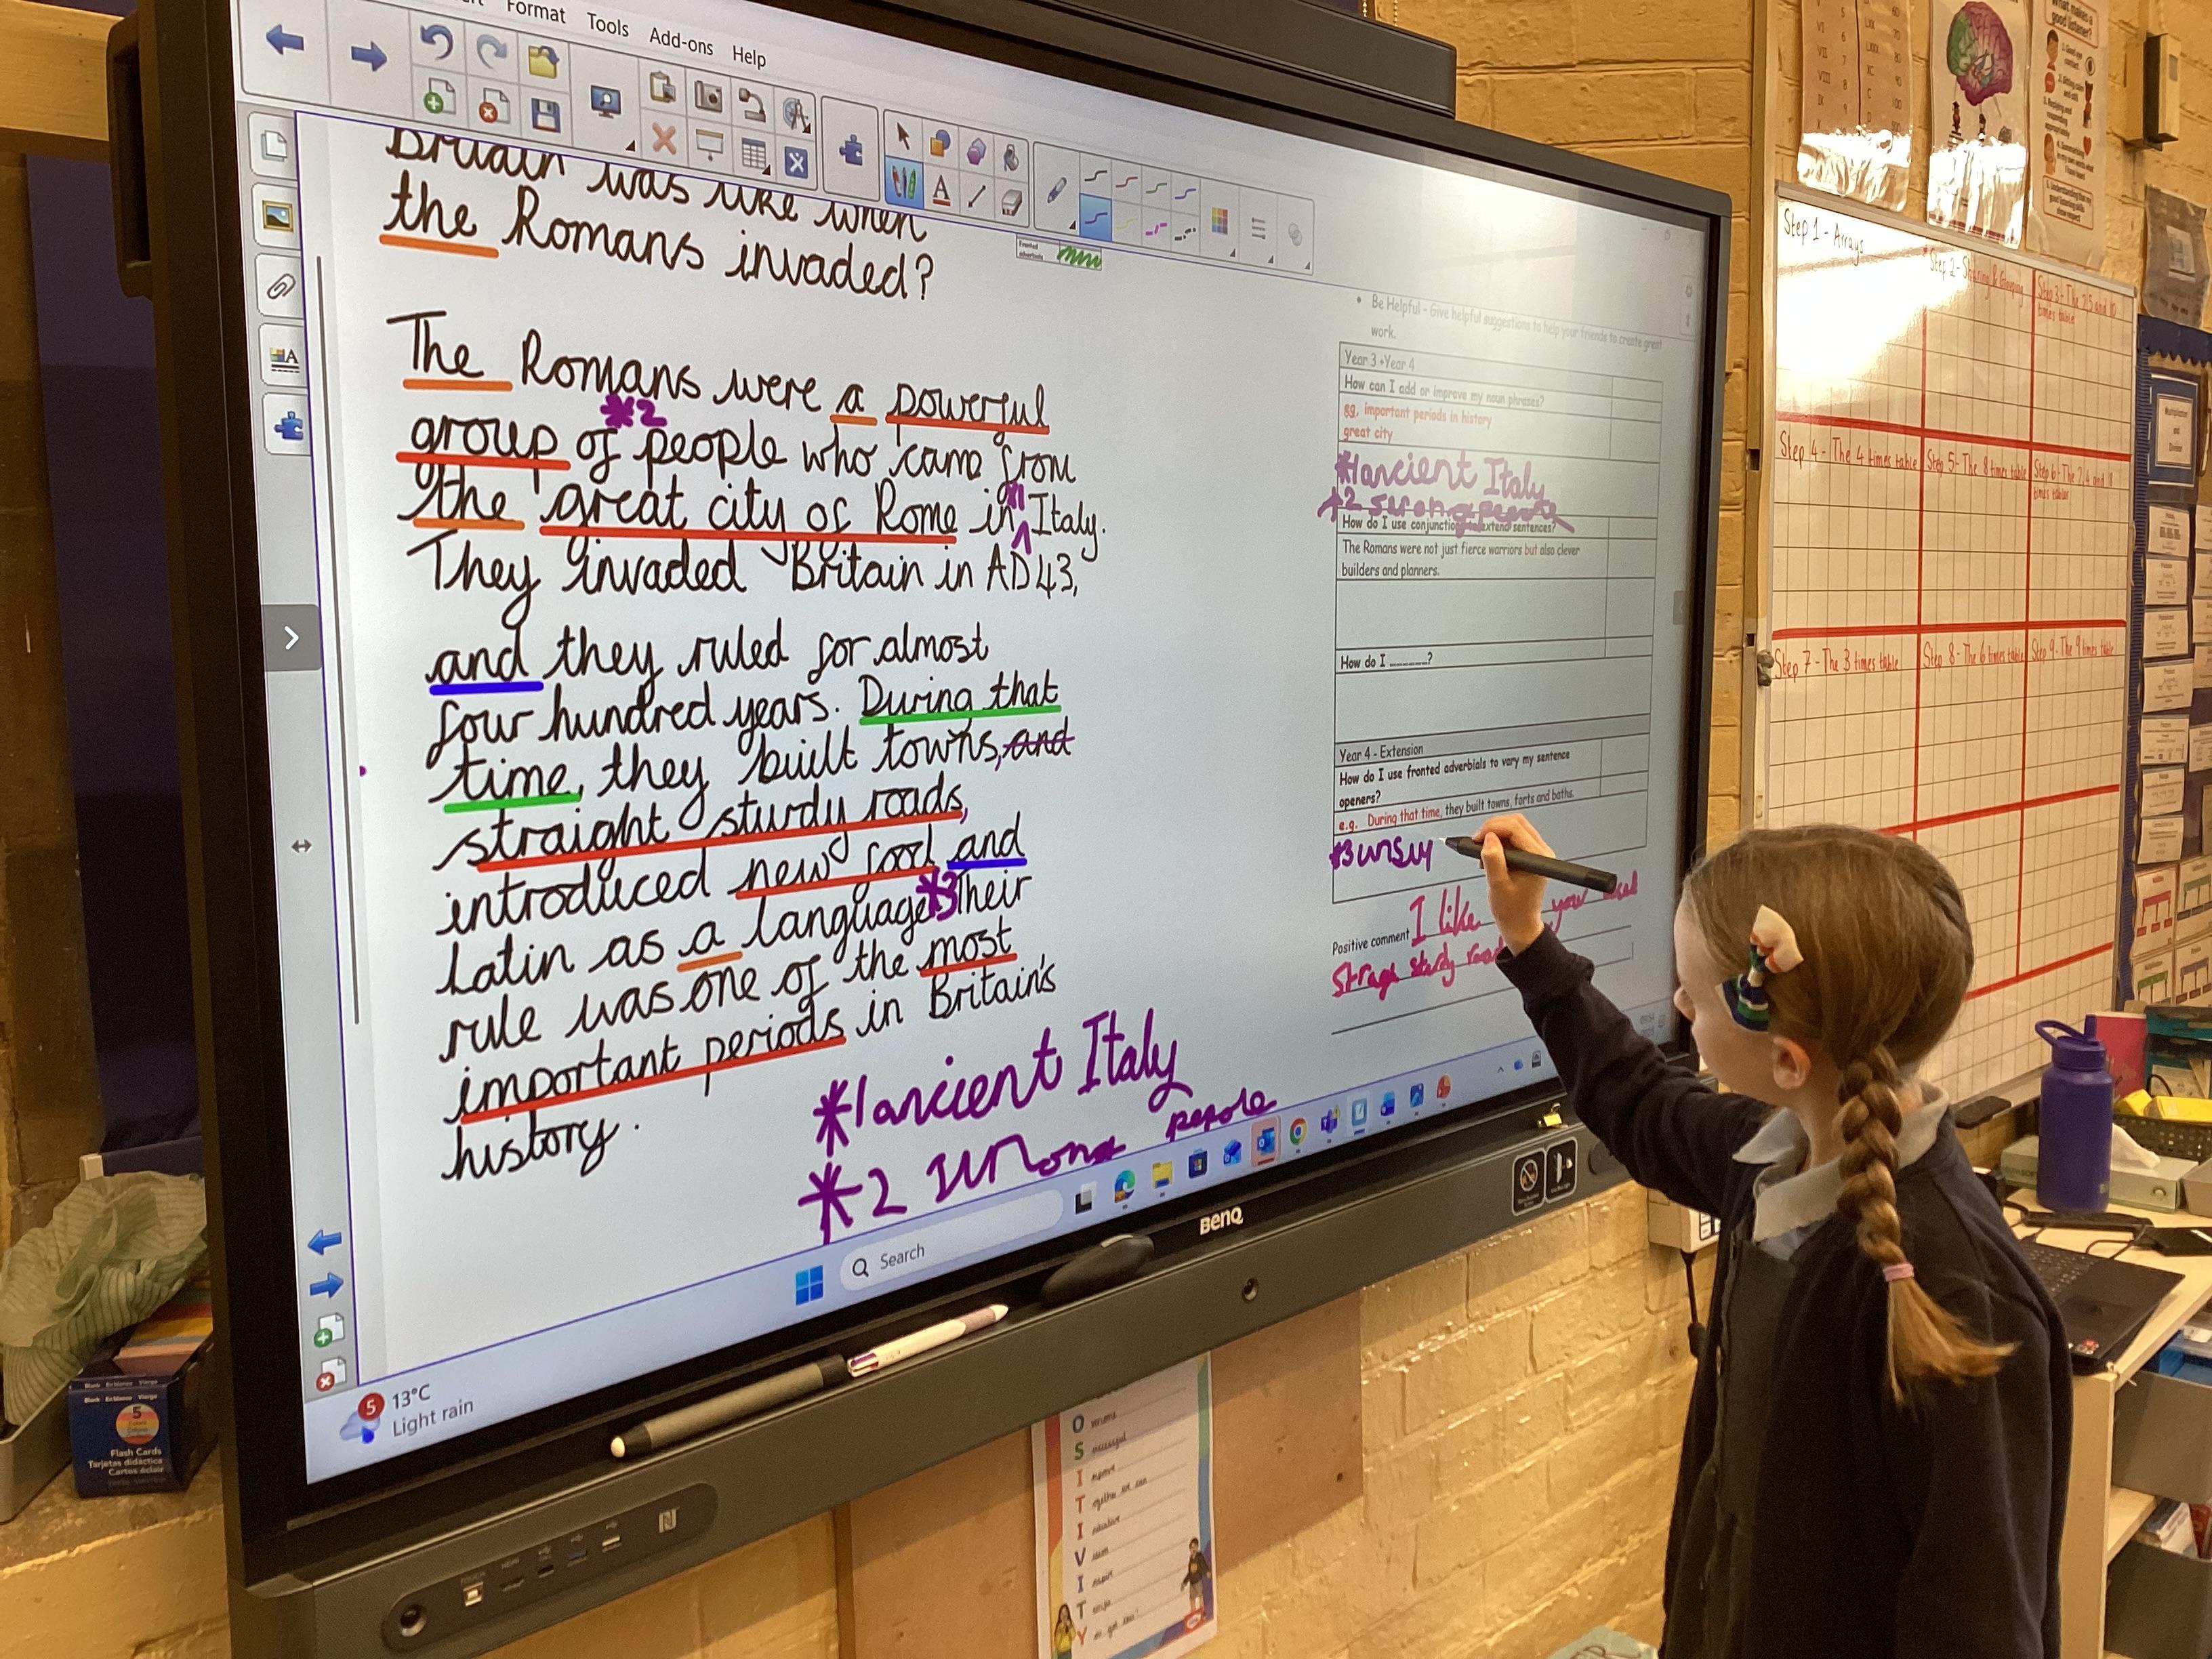 Format Tools Add-ons Help
Britain was like when
the Romans invaded?
The Romans were a powerful
*2
group of people who came from
the great city of Rome in *1 Italy.
They invaded Britain in AD 43,
and they ruled for almost
four hundred years. During that
time, they built towns, and
straight sturdy roads,
introduced new food and
Latin as a language *3 Their
rule was one of the most
important periods in Britain's
history.
*1 ancient Italy
*2 strong
Fronted
• Be Helpful - Give helpful suggestions to help your friends to create great
work.
Year 3 + Year 4
How can I add or improve my noun phrases?
eg. important periods in history
great city
*1 ancient Italy
*2
How do I use conjunctions extend sentences?
The Romans were not just fierce warriors but also clever
builders and planners.
How do I ______?
Year 4 - Extension
How do I use fronted adverbials to vary my sentence
openers?
e.g. During that time, they built towns, forts and baths.
*3
Positive comment I like you used
sturdy
Search
5
13°C
Light rain
BenQ
What makes a
good listener?
VI
VII
VIII
IX
Step 1 - Arrays
Step 2 - Sharing & Grouping
Step 3 - The 2, 5 and 10
times table
Step 4 - The 4 times table
Step 5 - The 8 times table
Step 6 - The 2, 4 and 8
times tables
Step 7 - The 3 times table
Step 8 - The 6 times table
Step 9 - The 9 times table
Multiplication
and
Division
5
Flash Cards
Tarjetas didáctica
Cartes éclair
O
S
I
T
I
V
I
T
Y